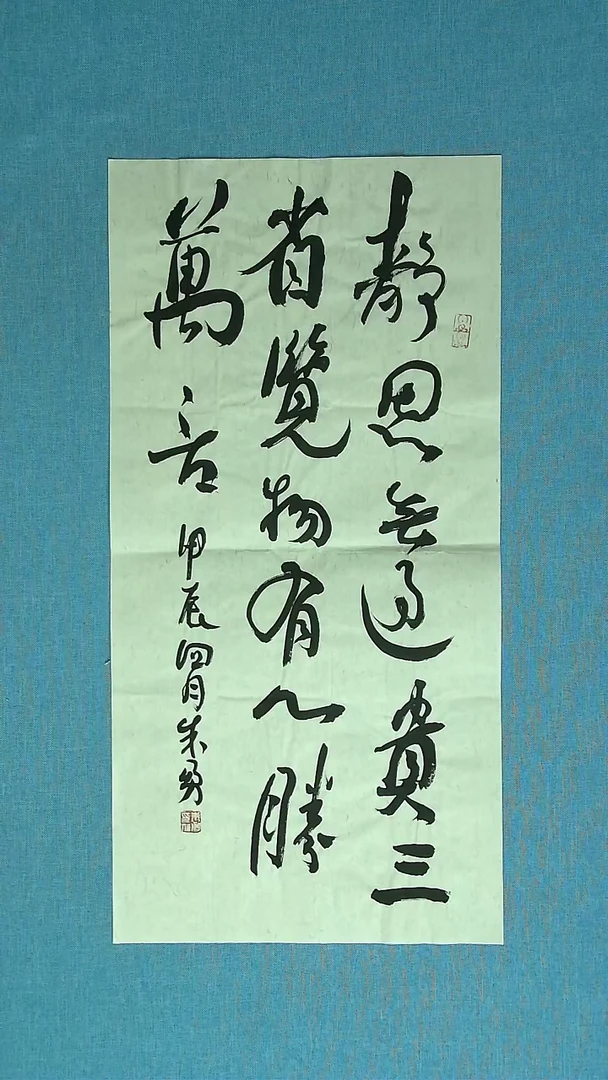 靜思無過貴三
省覽物有心勝
萬言甲辰四月朱勇